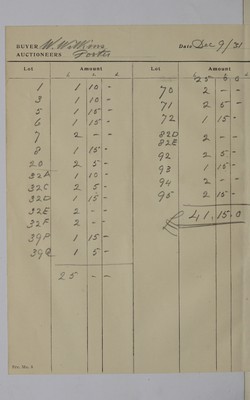 BUYER W. Watkins Date Dec 9/31
AUCTIONEERS Foster
Lot Amount
£ s d
1 1 10 -
3 1 10 -
5 1 15 -
6 1 15 -
7 2 - -
8 1 15 -
20 2 5 -
32A 1 10 -
32C 2 5 -
32D 1 15 -
32E 2 - -
32F 2 - -
39P 1 15 -
39Q 1 5 -
25 - -
Lot Amount
£ s d
25 0 0
70 2 - -
71 2 5 -
72 1 15 -
82D
82E 2 - -
92 2 5 -
93 1 15 -
94 2 - -
95 2 15 -
£41.15.0